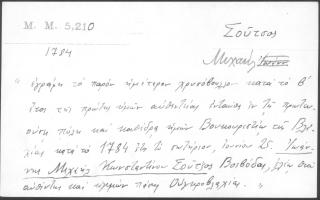 M. M. 5,210
Σοῦτσος
1784
Μιχαὴλ
„ ἐγράφη τὸ παρὸν ἡμέτερον χρυσόβουλλον κατὰ τὸ β'
ἔτος τῆς πρώτης ἡμῶν αὐθεντείας ἐνταῦθα ἐν τῇ πρωτευ-
ούσῃ πόλει καὶ καθέδρᾳ ἡμῶν Βουκουρεστίῳ τῆς Βλα-
χίας κατὰ τὸ 1784 ἔτος τὸ σωτήριον, Ἰουνίου 25. Ἰωάν-
νης Μιχαὴλ Κωνσταντίνου Σοῦτζος Βοεβόδας, ἐλέῳ Θεοῦ
αὐθέντης καὶ ἡγεμὼν πάσης Οὑγκροβλαχίας. "